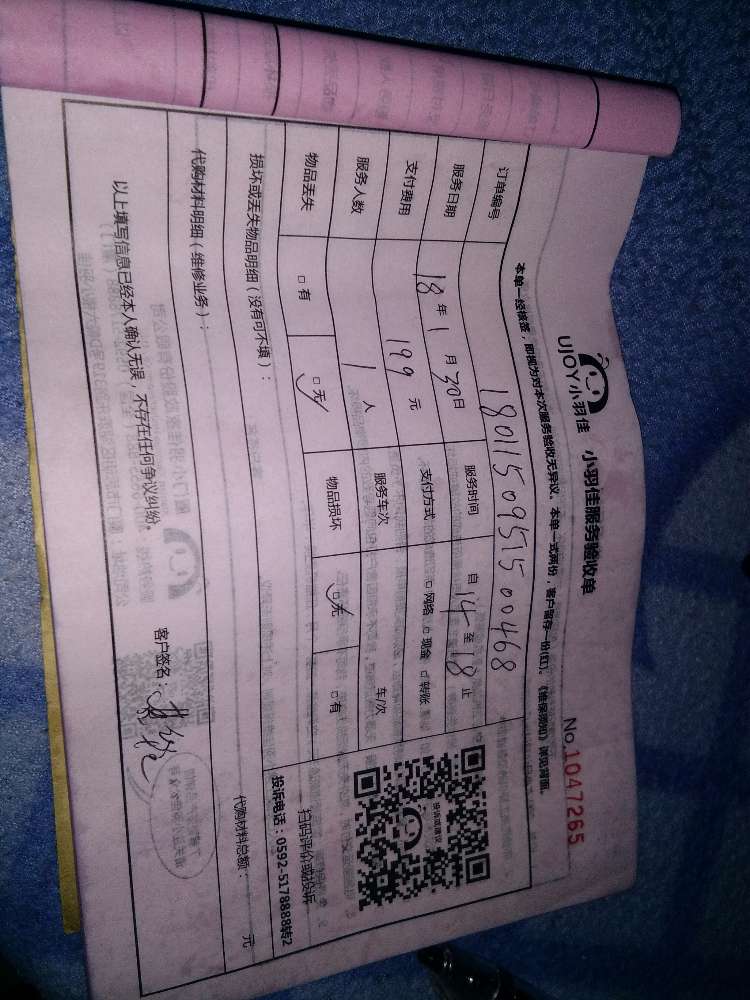 UJOY小羽佳 小羽佳服务验收单
No.1047265
本单一经核签，即视为对本次服务验收无异议。本单一式两份，客户留存一份(红)。《维保须知》详见背面。
订单编号 180115095150 0468
服务日期 18年1月30日 服务时间 自14至18止
支付费用 199元 支付方式 □网络 □现金 □转账
服务人数 1人 服务车次 车/次
物品丢失 □有 □无 物品损坏 □无 □有
投诉或建议
扫码评价或投诉
投诉电话：0592-5178888转2
损坏或丢失物品明细（没有可不填）：
代购材料明细（维修业务）：
代购材料总额： 元
以上填写信息已经本人确认无误，不存在任何争议纠纷。
客户签名：